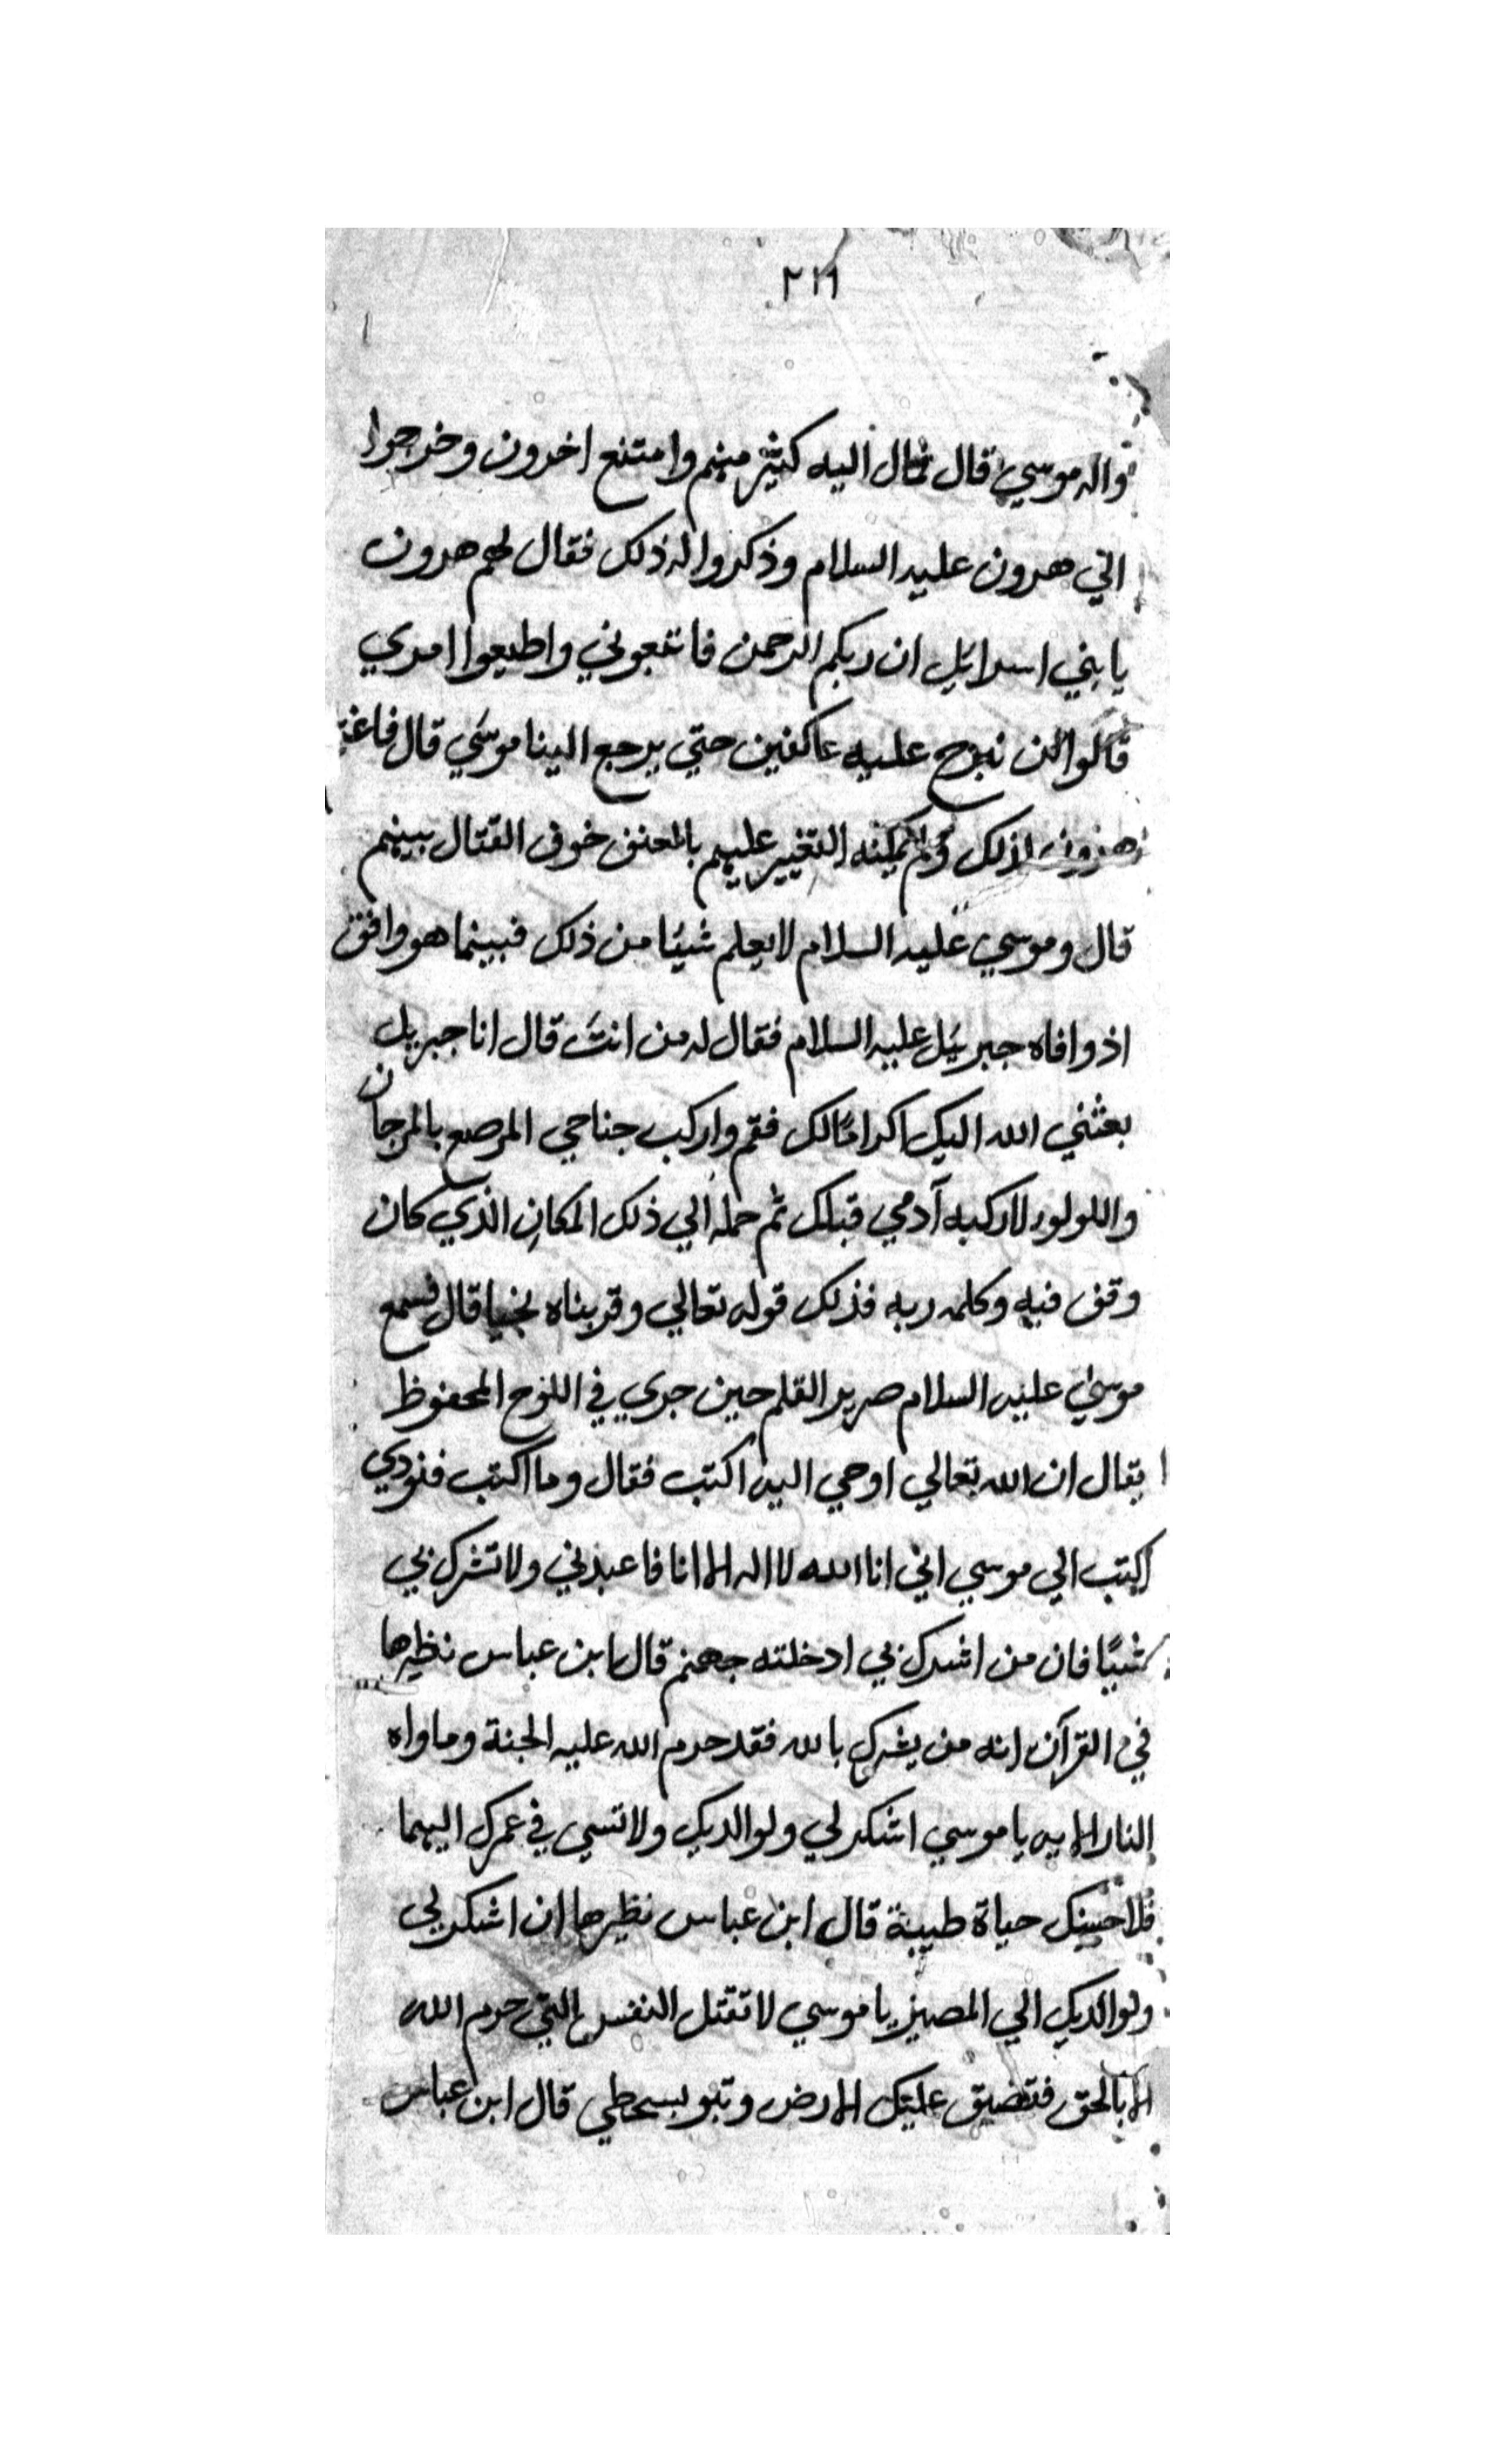 ٢١٦
واله موسي قال فمال اليه كثير منهم وامتنع اخرون وخرجوا
الي هرون عليه السلام وذكروا له ذلك فقال لهم هرون
يابني اسرائيل ان ربكم الرحمن فاتبعوني واطيعوا امري
قالوا لن نبرح عليه عاكفين حتي يرجع الينا موسي قال فاغتم
هرون لذلك ولم يمكنه التغيير عليهم بالعنف خوف القتال بينهم
قال وموسي عليه السلام لايعلم شيئا من ذلك فبينما هو واقف
اذ وافاه جبريل عليه السلام فقال له من انت قال انا جبريل
بعثني الله اليك اكراما لك فقم واركب جناحي المرصع بالمرجان
واللولو لاركبه آدمي قبلك ثم حمله الي ذلك المكان الذي كان
وقف فيه وكلمه ربه فذلك قوله تعالي وقربناه نجيا قال فسمع
موسي عليه السلام صرير القلم حين جري في اللوح المحفوظ
يقال ان الله تعالي اوحي اليه اكتب فقال وما اكتب فنودي
اكتب الي موسي اني انا الله لا اله الا انا فاعبدني ولا تشرك بي
شيئا فان من اشرك بي ادخلته جهنم قال ابن عباس نظيرها
في القرآن انه من يشرك بالله فقد حرم الله عليه الجنة وماواه
النار الايه يا موسي اشكر لي ولوالديك ولا تسي في عمرك اليهما
فلاحيينك حياة طيبة قال ابن عباس نظيرها ان اشكر لي
ولوالديك الي المصير يا موسي لا تقتل النفس التي حرم الله
الا بالحق فتضيق عليك الارض وتبو بسخطي قال ابن عباس